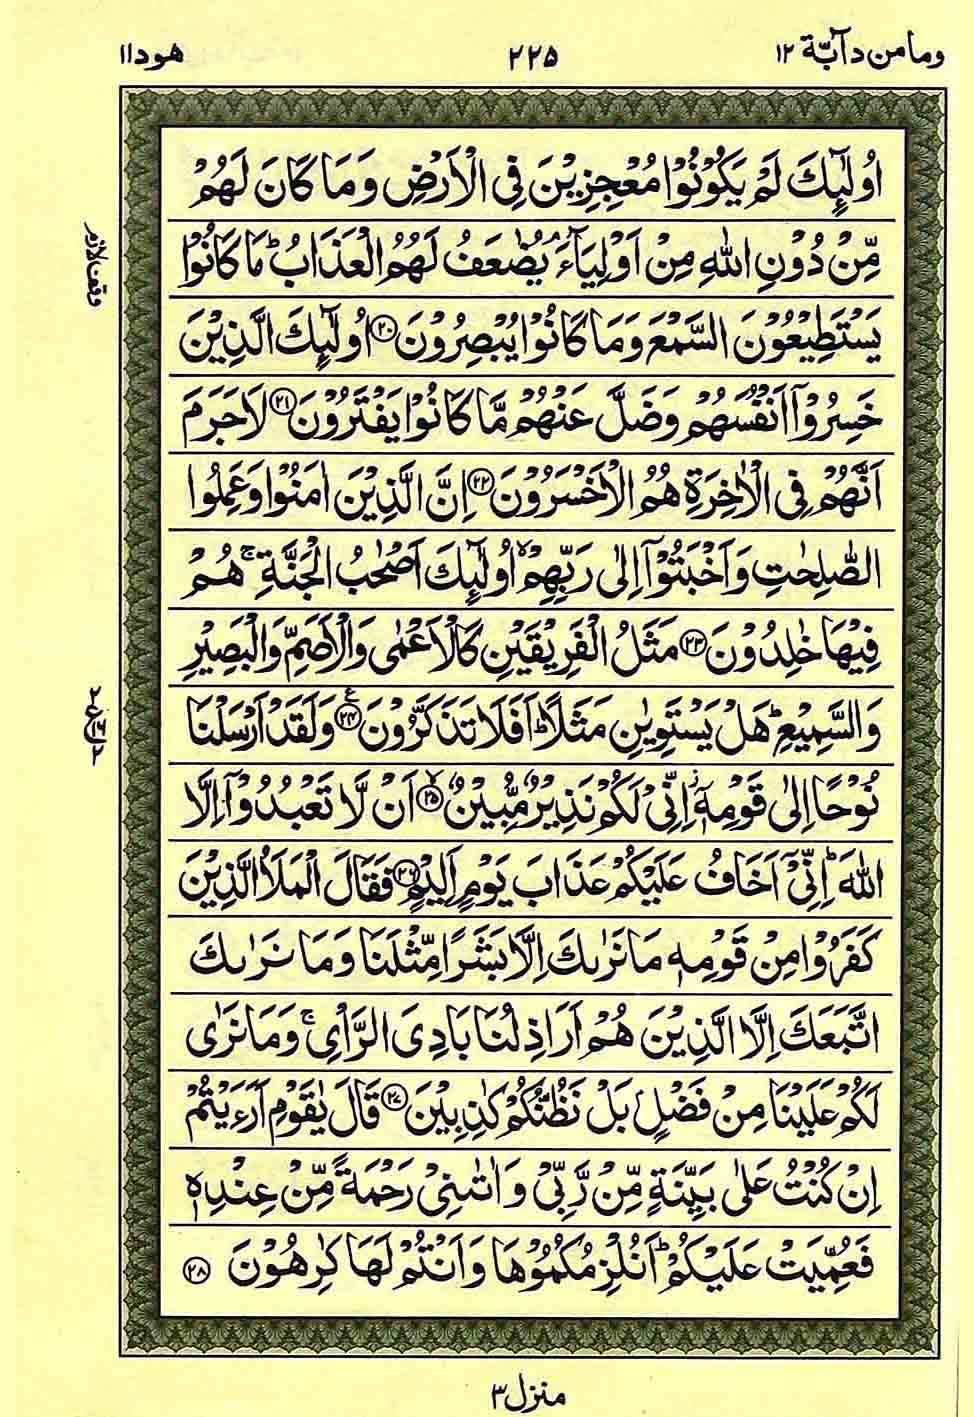 وما من دآبّة ١٢
٢٢٥
هود ١١
اُولٰٓئِكَ لَمْ يَكُوْنُوْا مُعْجِزِيْنَ فِى الْاَرْضِ وَمَا كَانَ لَهُمْ
مِّنْ دُوْنِ اللّٰهِ مِنْ اَوْلِيَآءَ ۘ يُضٰعَفُ لَهُمُ الْعَذَابُ ؕ مَا كَانُوْا
يَسْتَطِيْعُوْنَ السَّمْعَ وَمَا كَانُوْا يُبْصِرُوْنَ ﴿٢٠﴾ اُولٰٓئِكَ الَّذِيْنَ
خَسِرُوْۤا اَنْفُسَهُمْ وَضَلَّ عَنْهُمْ مَّا كَانُوْا يَفْتَرُوْنَ ﴿٢١﴾ لَا جَرَمَ
اَنَّهُمْ فِى الْاٰخِرَةِ هُمُ الْاَخْسَرُوْنَ ﴿٢٢﴾ اِنَّ الَّذِيْنَ اٰمَنُوْا وَعَمِلُوا
الصّٰلِحٰتِ وَاَخْبَتُوْۤا اِلٰى رَبِّهِمْ ۙ اُولٰٓئِكَ اَصْحٰبُ الْجَنَّةِ ۚ هُمْ
فِيْهَا خٰلِدُوْنَ ﴿٢٣﴾ مَثَلُ الْفَرِيْقَيْنِ كَالْاَعْمٰى وَالْاَصَمِّ وَالْبَصِيْرِ
وَالسَّمِيْعِ ؕ هَلْ يَسْتَوِيٰنِ مَثَلًا ؕ اَفَلَا تَذَكَّرُوْنَ ﴿٢٤﴾ ع وَلَقَدْ اَرْسَلْنَا
نُوْحًا اِلٰى قَوْمِهٖۤ ز اِنِّىْ لَكُمْ نَذِيْرٌ مُّبِيْنٌ ﴿٢٥﴾ ۙ اَنْ لَّا تَعْبُدُوْۤا اِلَّا
اللّٰهَ ؕ اِنِّىْۤ اَخَافُ عَلَيْكُمْ عَذَابَ يَوْمٍ اَلِيْمٍ ﴿٢٦﴾ فَقَالَ الْمَلَاُ الَّذِيْنَ
كَفَرُوْا مِنْ قَوْمِهٖ مَا نَرٰىكَ اِلَّا بَشَرًا مِّثْلَنَا وَمَا نَرٰىكَ
اتَّبَعَكَ اِلَّا الَّذِيْنَ هُمْ اَرَاذِلُنَا بَادِىَ الرَّاْىِ ۚ وَمَا نَرٰى
لَكُمْ عَلَيْنَا مِنْ فَضْلٍۭ بَلْ نَظُنُّكُمْ كٰذِبِيْنَ ﴿٢٧﴾ قَالَ يٰقَوْمِ اَرَءَيْتُمْ
اِنْ كُنْتُ عَلٰى بَيِّنَةٍ مِّنْ رَّبِّىْ وَاٰتٰىنِىْ رَحْمَةً مِّنْ عِنْدِهٖ
فَعُمِّيَتْ عَلَيْكُمْ ؕ اَنُلْزِمُكُمُوْهَا وَاَنْتُمْ لَهَا كٰرِهُوْنَ ﴿٢٨﴾
وقف لازم
٢
ع
١٦
٢
منزل ٣